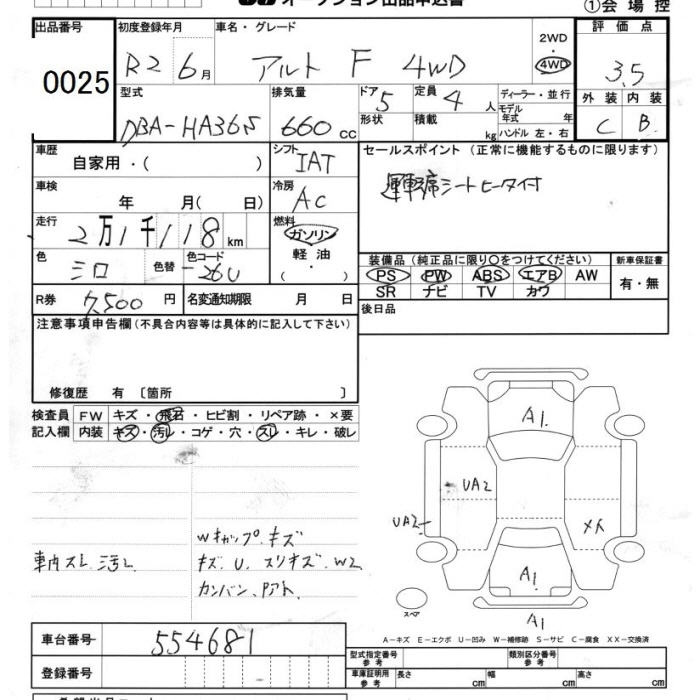 オークション出品申込書 ①会場控
出品番号 初度登録年月 車名・グレード 2WD 評価点
0025 R2 6月 アルト F 4WD 4WD 3.5
型式 排気量 ドア 5 定員 4 人 ディーラー・並行 外装 内装
DBA-HA36S 660 cc 形状 積載 kg モデル年式 年式 C B
ハンドル 左・右
車歴 シフト セールスポイント (正常に機能するものに限ります)
自家用・( ) IAT 運転席シートヒータ付
車検 冷房
年 月( 日) AC
走行 燃料
2万1千118 km ガソリン
色 色替 色コード 軽油 装備品(純正品に限り○をつけてください) 新車保証書
シロ -26U ・( ) PS PW ABS エアB AW 有・無
SR ナビ TV カワ
R券 7,500円 名変通知期限 月 日 後日品
注意事項申告欄(不具合内容等は具体的に記入して下さい)
修復歴 有 〔箇所 〕
検査員 FW キズ・飛石・ヒビ割・リペア跡・×要
記入欄 内装 キズ・汚レ・コゲ・穴・スレ・キレ・破レ
A1.
UA2
UA2
Wキャップ.キズ
車内スレ.汚レ キズ.U.スリキズ.W2
カンバン、Pアト
A1.
スペア
A1
A-キズ E-エクボ U-凹み W-補修跡 S-サビ C-腐食 XX-交換済
車台番号 554681
型式指定番号 参考 類別区分番号 参考
登録番号 車庫証明用 参考 長さ cm 幅 cm 高さ cm